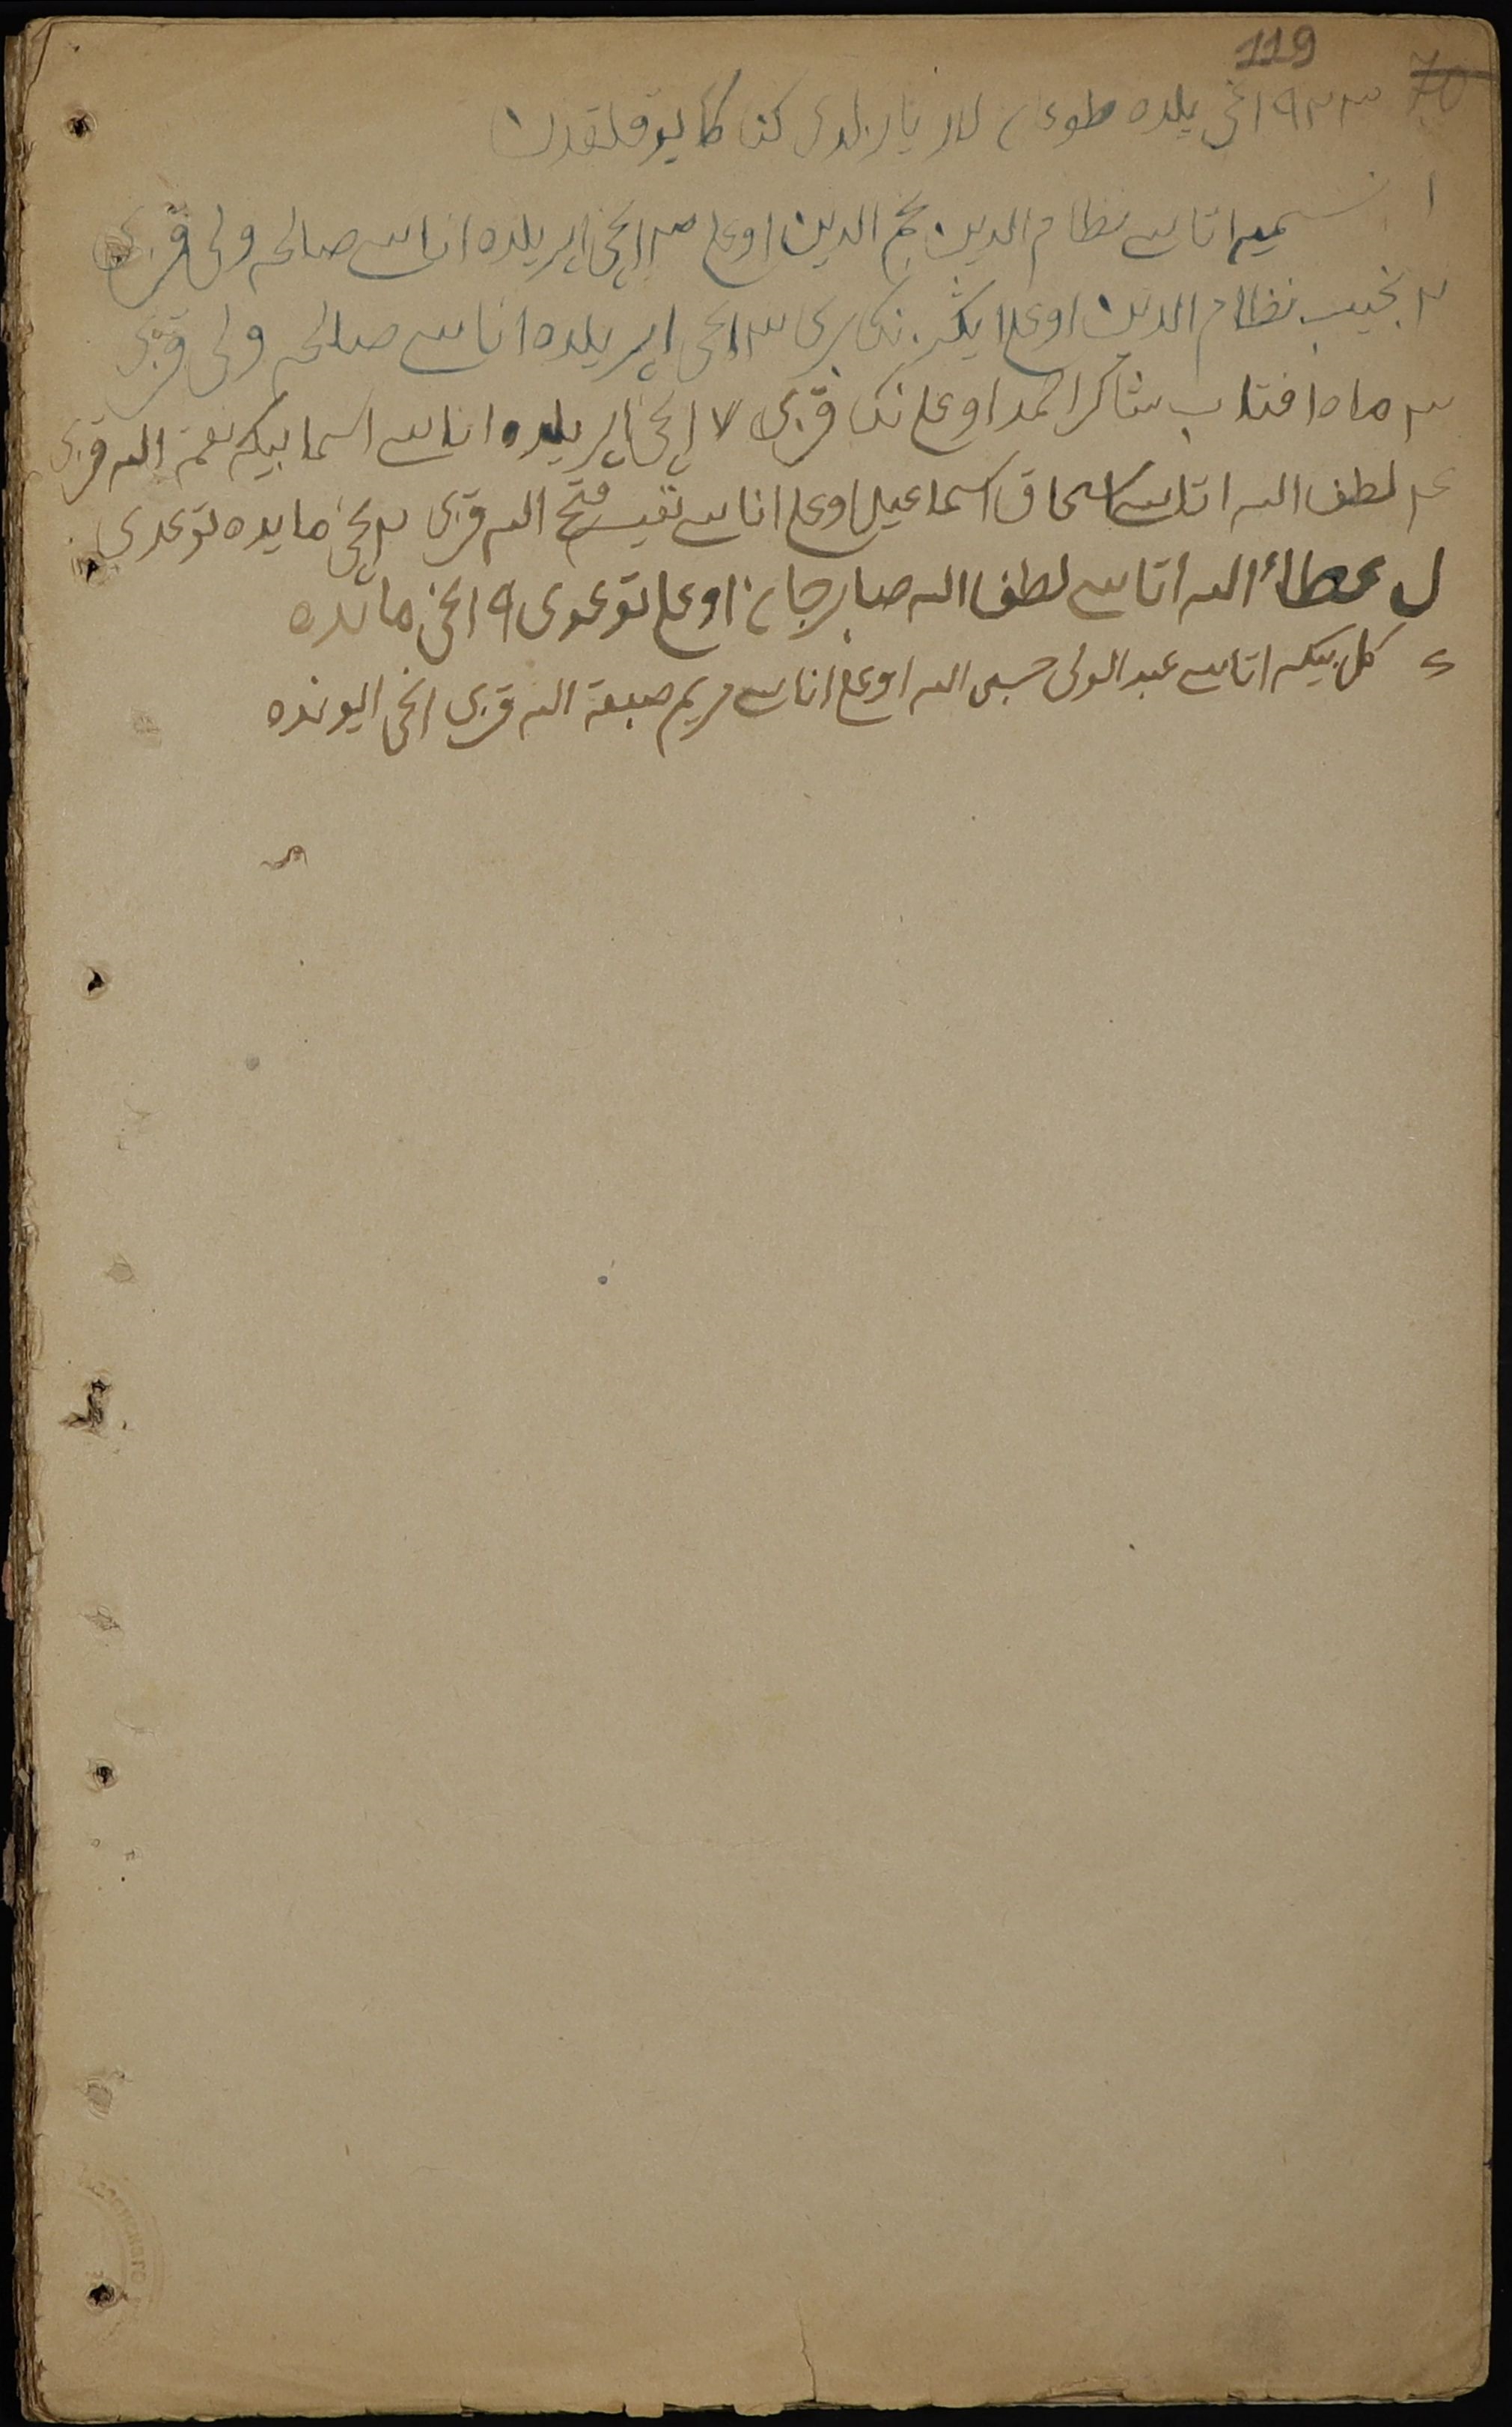 119
70
٩٢٣ انجی یلده طوغان لار یازلدی
١ نسمیه اتاسی نظام الدین نجم الدین اوغلی ٣ انجی اپریلده اناسی صالحه ولی قزی
٢ نجیب نظام الدین اوغلی ایگزنک بری ٣ انجی اپریلده اناسی صالحه ولی قزی
٣ ماه افتاب شاکر احمد اوغلی نک قزی ٧ انجی اپریلده اناسی اسما بیکه نعمة الله قزی
٤ لطف الله اتاسی اسحاق اسماعیل اوغلی اناسی نفیسه فتح الله قزی ٢ نجی مایده توغدی
عطاء الله اتاسی لطف الله صابرجان اوغلی توغدی ٩ انجی مایده
کل بیکه اتاسی عبد الولی حسبی الله اوغلی اناسی مریم صبغة الله قزی انجی ایونده